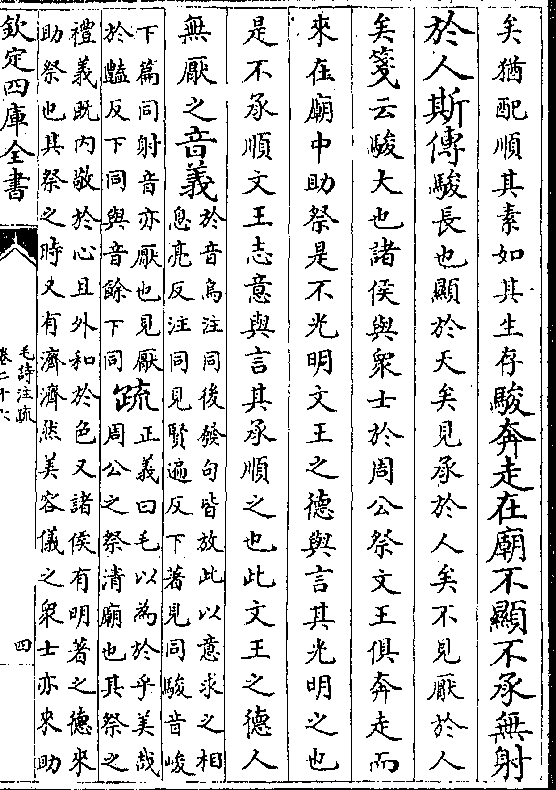 矣猶配順其素如其生存駿奔走在廟不顯不承無射
於人斯傳駿長也顯於天矣見承於人矣不見厭於人
矣箋云駿大也諸侯與衆士於周公祭文王俱奔走而
來在廟中助祭是不光明文王之德與言其光明之也
是不承順文王志意與言其承順之也此文王之德人
無厭之音義於音烏注同後發句皆放此以意求之相
息亮反注同見賢遍反下著見同駿音峻
下篇同射音亦厭也見厭
於豔反下同與音餘下同疏正義曰毛以為於乎美哉
周公之祭清廟也其祭之
禮義既內敬於心且外和於色又諸侯有明著之德來
助祭也其祭之時又有濟濟然美容儀之衆士亦來助
欽定四庫全書
毛詩注疏
卷二十六
四